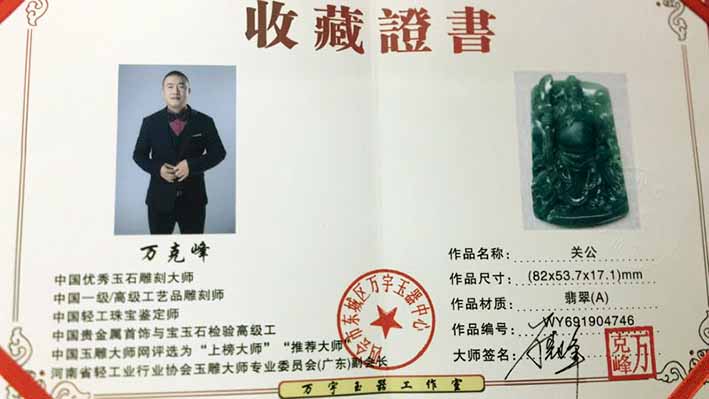 收藏證書
万克峰
中国优秀玉石雕刻大师
中国一级/高级工艺品雕刻师
中国轻工珠宝鉴定师
中国贵金属首饰与宝玉石检验高级工
中国玉雕大师网评选为“上榜大师”“推荐大师”
河南省轻工业行业协会玉雕大师专业委员会(广东)副会长
作品名称: 关公
作品尺寸: (82x53.7x17.1)mm
作品材质: 翡翠(A)
作品编号: WY691904746
大师签名:
万克峰
四会市东城区万宇玉器中心
万宇玉器工作室